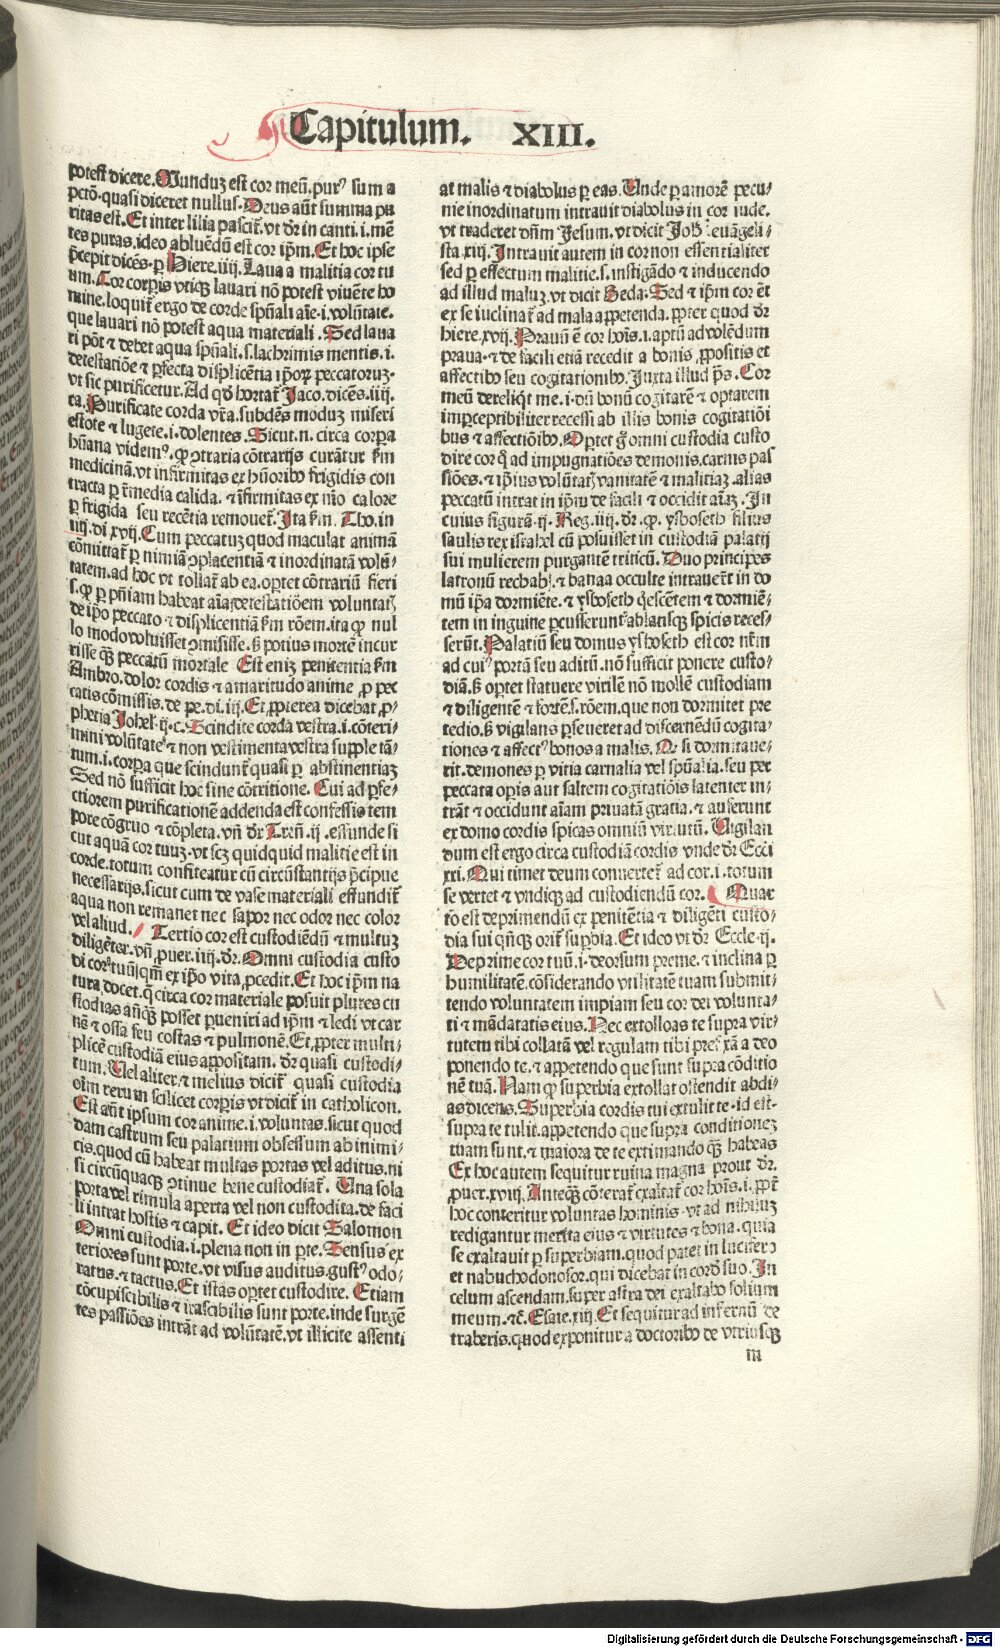 Capitulum. XIII.
potest dicere. Munduz est cor meũ. purꝰ sum a
pctõ. quasi diceret nullus. Deus aũt summa pu
ritas est. Et inter lilia pascit̃. vt dr̃ in canti. i. mẽ
tes puras. ideo abluẽdũ est cor ip̃m. Et hoc ipse
p̃cepit dicẽs. ꝑ Hiere. iiij. Laua a malitia cor tu
um. Cor corꝑis vtiqꝫ lauari nõ potest viuẽte ho
mine. loquit̃ ergo de corde spũali aĩe. i. volũtate.
que lauari nõ potest aqua materiali. Sed laua
ri põt ⁊ debet aqua spũali. s. lachrimis mentis. i.
detestatiõe ⁊ ꝑfecta displicẽtia ip̃oꝝ peccatoruz.
vt sic purificetur. Ad qd̃ hortat̃ Jaco. dicẽs. iiij.
ca. Purificate corda vr̃a. subdẽs moduz miseri
estote ⁊ lugete. i. dolentes. Sicut. n. circa corꝑa
hũana videmꝰ. ꝙ ꝯtraria cõtrarijs curãtur ẜm
medicinã. vt infirmitas ex hũoribꝰ frigidis con
tracta ꝑ r̃media calida. ⁊ ĩfirmitas ex nĩo calore
ꝑ frigida seu recẽtia remouet̃. Ita ẜm. Tho. in
iiij. di. xvij. Cum peccatuz quod maculat animã
cõmittat̃ ꝑ nimiã ꝯplacentiã ⁊ inordinatã volũ-
tatem. ad hoc vt tollat̃ ab ea. oꝑtet cõtrariũ fieri
s. ꝙ ꝑ pñiam habeat aĩa detestatiõem voluntaꝭ
de ip̃o peccato ⁊ displicentiã ẜm rõem. ita ꝙ nul
lo modo voluisset ꝯmisisse. ẜ potius mortẽ incur
risse qꝫ peccatũ mortale Est enĩz penitentia ẜm
Ambro. dolor cordis ⁊ amaritudo anime ꝓ pec
catis cõmissis. de pe. di. iij. Et ꝓpterea dicebat ꝓ-
pheria Johel. ij. c. Scindite corda vestra. i. cõteri-
mini volũtate ⁊ non vestimenta vestra supple tã-
tum. i. corꝑa que scindunt̃ quasi ꝑ abstinentiaz
Sed nõ sufficit hoc sine cõtritione. Cui ad ꝑfe-
ctiorem purificationẽ addenda est confessis tem
pore cõgruo ⁊ cõpleta. vñ dr̃ Trẽn. ij. effunde si
cut aquã cor tuuz. vt scz quidquid malitie est in
corde. totum confiteatur cũ circũstantijs p̃cipue
necessarijs. sicut cum de vase materiali effundit̃
aqua non remanet nec sapor nec odor nec color
vel aliud. Tertio cor est custodiẽdũ ⁊ multuz
diligẽter. vñ ꝓuer. iiij. dr̃. Omni custodia custo
di cor tuũ qm̃ ex ip̃o vita ꝓcedit. Et hoc ip̃m na
tura docet. q̃ circa cor materiale posuit plures cu
stodias añqꝫ posset ꝑueniri ad ip̃m ⁊ ledi vt car
nẽ ⁊ ossa seu costas ⁊ pulmonẽ. Et ꝓpter multi-
plicẽ custodiã eius appositam. dr̃ quasi custodi-
tum. Uel aliter. ⁊ melius dicit̃ quasi custodia
oĩm rerum scilicet corꝑis vt dicit̃ in catholicon.
Est aũt ipsum cor anime. i. voluntas. sicut quod
dam castrum seu palatium obsessum ab inimi-
cis. quod cũ habeat multas portas vel aditus. ni
si circũquaqꝫ ꝯtinue bene custodiat̃. Una sola
porta vel rimula aperta vel non custodita. de faci
li intrat hostis ⁊ capit. Et ideo dicit Salomon
Omni custodia. i. plena non in ꝑte. Sensus ex
teriores sunt porte. vt visus auditus. gustꝰ odo-
ratus. ⁊ tactus. Et istas oꝑtet custodire. Etiam
cõcupiscibilis ⁊ irascibilis sunt porte. inde surgẽ
tes passiões intrãt ad volũtatẽ. vt illicite assenti
at malis ⁊ diabolus ꝑ eas. Unde ꝑ amorẽ pecu-
nie inordinatum intrauit diabolus in cor iude.
vt traderet dñm Jesum. vt dicit Joh. euãgeli-
sta. xiij. Intrauit autem in cor non essentialiter
sed ꝑ effectum malitie. s. instigãdo ⁊ inducendo
ad illud maluz. vt dicit Beda. Sed ⁊ ip̃m cor ẽt
ex se iuclinat̃ ad mala appetenda. ꝓpter quod dr̃
hiere. xvij. Prauũ ẽ cor hoĩs. i. aptũ ad volẽdum
praua. ⁊ de facili etiã recedit a bonis ꝓpositis et
affectibꝰ seu cogitationibꝰ. Juxta illud p̃s. Cor
meũ dereliq̃t me. i. dũ bonũ cogitarẽ ⁊ optarem
imꝑceptibiliter recessi ab illis bonis cogitatiõi
bus ⁊ affectiõibꝰ. Oꝑtet g̊ omni custodia custo
dire cor q̃ ad impugnatiões demonis. carnis pas
siões. ⁊ ip̃ius volũtaꝭ vanitatẽ ⁊ malitiaz. alias
peccatũ intrat in ip̃m de facili ⁊ occidit aĩaz. In
cuius figurã. ij. Reg. iiij. dr̃. ꝙ. ysboseth filius
saulis rex israhel cũ posuisset in custodiã palatij
sui mulierem purgantẽ triticũ. Duo principes
latronũ rechab. ⁊ banaa occulte intrauer̃t in do
mũ ip̃a dormiẽte. ⁊ ysboseth q̃escẽtem ⁊ dormiẽ-
tem in inguine ꝑcusserunt ablatisqꝫ spicis reces-
serũt. Palatiũ seu domus ysboseth est cor nr̃m
ad cuiꝰ portã seu aditũ. nõ sufficit ponere custo-
diã. ẜ oꝑtet statuere virilẽ nõ mollẽ custodiam
⁊ diligentẽ ⁊ fortẽ. s. rõem. que non dormitet pre
tedio. ẜ vigilans ꝑseueret ad discernẽdũ cogita-
tiones ⁊ affectꝰ bonos a malis. Qr̃ si dormitaue-
rit. demones ꝑ vitia carnalia vel spũalia. seu per
peccata oꝑis aut saltem cogitatiõis latenter in-
trãt ⁊ occidunt aĩam priuatã gratia. ⁊ auferunt
ex domo cordis spicas omniũ virtutũ. Uigilan
dum est ergo circa custodiã cordis vnde dr̃ Ecci
xxi. Qui timet deum conuertet̃ ad cor. i. totum
se vertet ⁊ vndiqꝫ ad custodiendũ cor. Quar
to est deprimendũ ex penitẽtia ⁊ diligẽti custo-
dia sui qñqꝫ orit̃ suꝑbia. Et ideo vt dr̃ Eccle. ij.
Deprime cor tuũ. i. deorsum preme. ⁊ inclina ꝑ
humilitatẽ. cõsiderando vtilitatẽ tuam submit-
tendo voluntatem impiam seu cor dei volunta-
ti ⁊ mãdatatis eius. Nec extolloas te supra vir-
tutem tibi collatã vel regulam tibi prefixã a deo
ponendo te. ⁊ appetendo que sunt supra cõditio
nẽ tuã. Nam ꝙ superbia extollat ostendit abdi-
as dicens. Superbia cordis tui extulit te. id est.
supra te tulit. appetendo que supra conditionez
tuam sunt. ⁊ maiora de te extimando qꝫ habeas
Ex hoc autem sequitur ruina magna prout dr̃.
ꝓuer. xviij. Anteqꝫ cõterat̃ exaltat̃ cor hoĩs. i. ꝓt̃
hoc conteritur voluntas hominis. vt ad nihiluz
redigantur merita eius ⁊ virtutes ⁊ bona. quia
se exaltauit ꝑ superbiam. quod patet in lucifero
et nabuchodonosor. qui dicebat in cord̃ suo. In
celum ascendam. super astra dei exaltabo solium
meum. ⁊c̃. Esaie. xiij. Et sequitur ad infernũ de
traheris. quod exponitur a doctoribꝰ de vtriusqꝫ
m
Digitalisierung gefördert durch die Deutsche Forschungsgemeinschaft - DFG